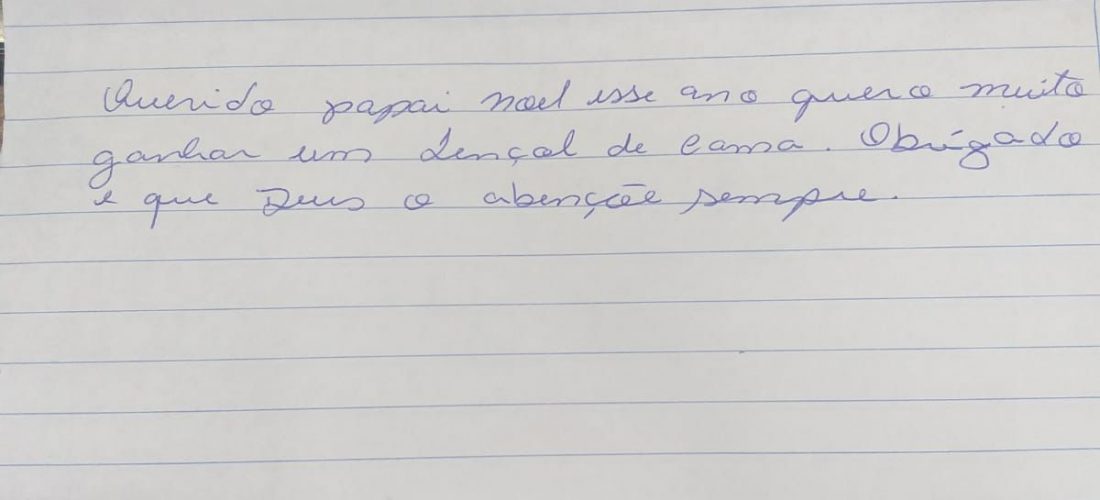 Querido papai noel esse ano quero muito
ganhar um Lençol de cama. Obrígado
e que Deus o abençõe sempre.